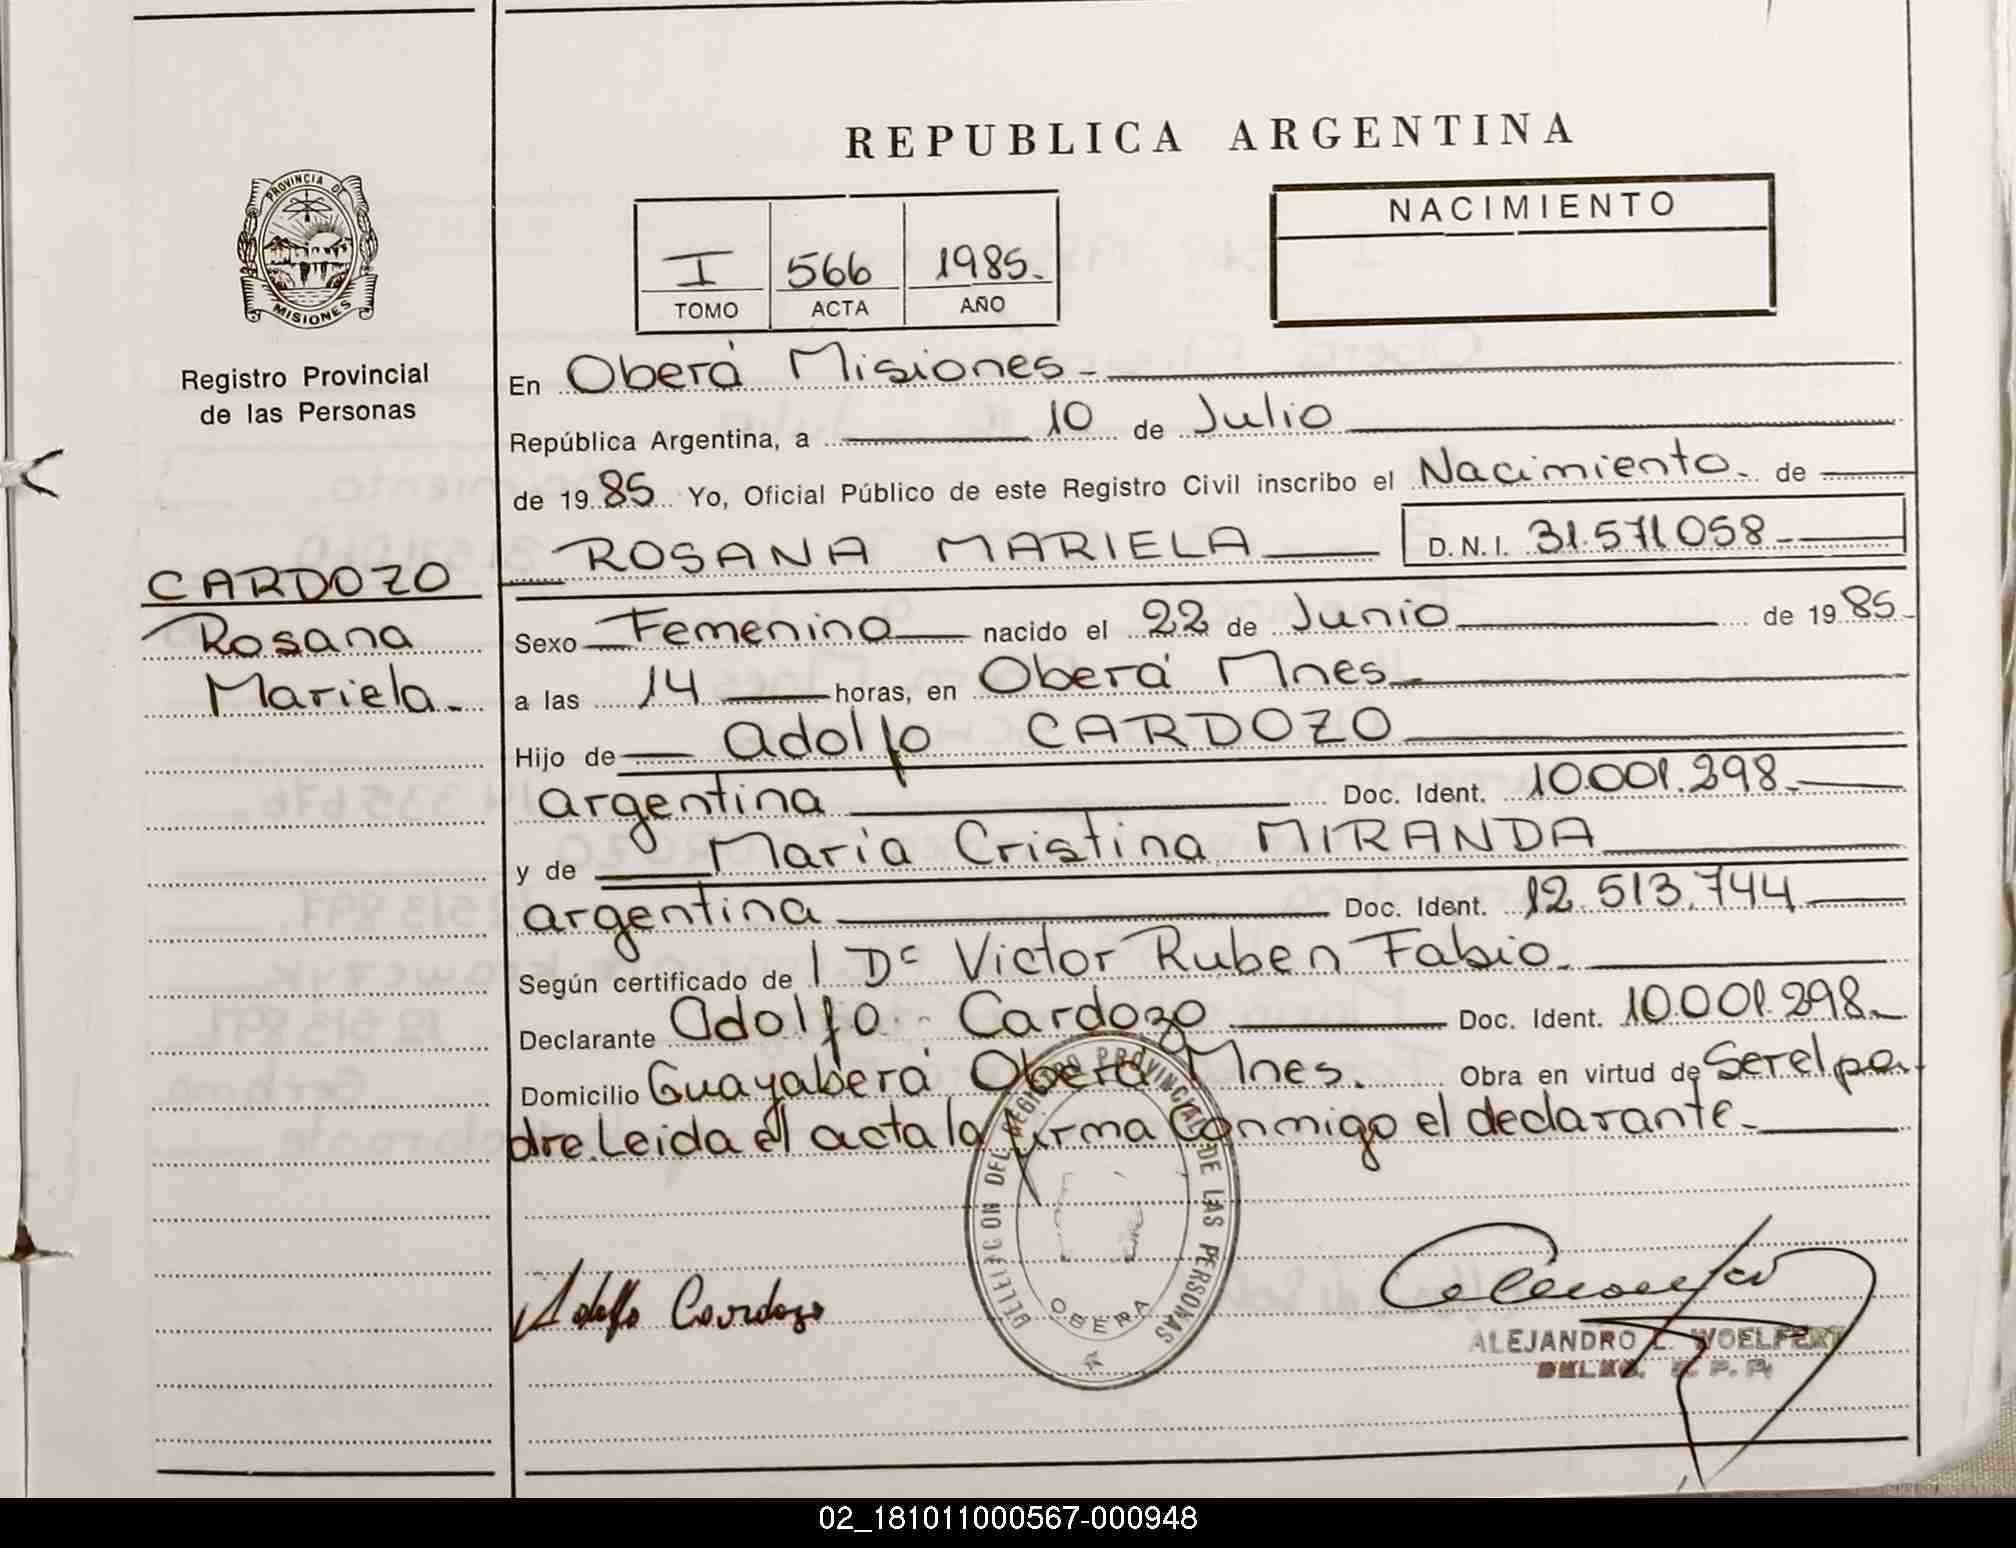 REPUBLICA ARGENTINA
PROVINCIA DE
MISIONES
Registro Provincial
de las Personas
CARDOZO
Rosana
Mariela.
I 566 1985.
TOMO ACTA AÑO
NACIMIENTO
En Oberá Misiones.
República Argentina, a 10 de Julio
de 19 85 Yo, Oficial Público de este Registro Civil inscribo el Nacimiento. de
ROSANA MARIELA D.N.I. 31.571058
Sexo Femenino nacido el 22 de Junio de 19 85.
a las 14 horas, en Oberá Mnes.
Hijo de Adolfo CARDOZO
argentina Doc. Ident. 10.001.298.
y de María Cristina MIRANDA
argentina Doc. Ident. 12.513.744
Según certificado de l Dc Victor Ruben Fabio.
Declarante Adolfo Cardozo Doc. Ident. 10.001.298.
Domicilio Guayaberá Oberá Mnes. Obra en virtud de Serelpa
dre. Leida el acta la firma Conmigo el declarante.
DELEGCION DEL REGISTRO PROVINCIAL DE LAS PERSONAS
OBERA
Adolfo Cardozo
ALEJANDRO E. WOELFERT
DELEG. R. P. P.
02_181011000567-000948